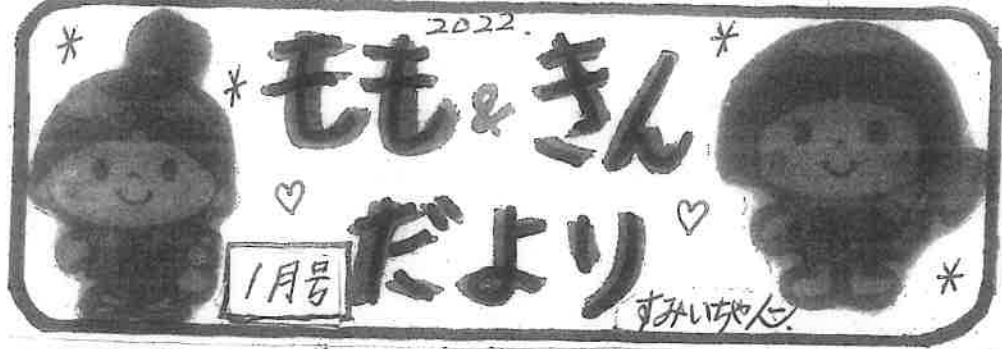 2022.
もも&きん
だより
1月号
すみいちゃん